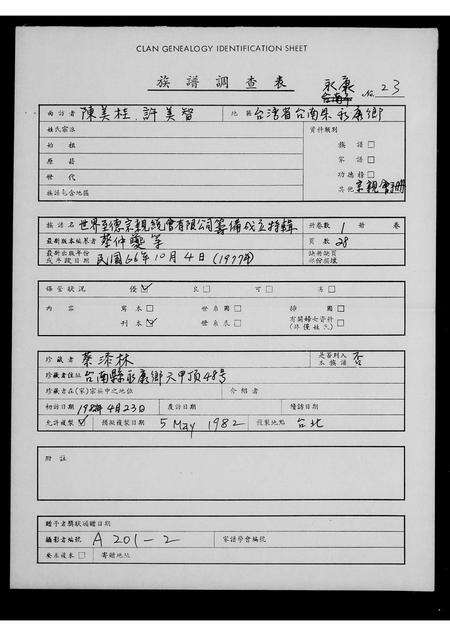 CLAN GENEALOGY IDENTIFICATION SHEET
族譜調查表
永康
台南市 No. 23
面訪者 陳美桂、許美智 地區 台湾省台南縣永康鄉
姓氏宗派 資料類別
始祖 族譜□
原居 家譜□
世代 功德榜□
族譜包含地區 其他 宗親會冊
族譜名 世界至德宗親總會有限公司籌備成立特輯 冊卷數 1 冊 卷
最新版本編纂者 蔡仲 等 頁數 28
最新出版年份或手段日期 民國66年10月4日(1977年) 缺冊缺頁
保管狀況 優☑ 良□ 可□ 劣□
內容 寫本□ 世系圖□ 插圖□
刊本☑ 世系表□ 有關婦女資料(非僅姓氏)□
珍藏者 蔡添林 是否列入本族譜 否
珍藏者住址 台南縣永康鄉六甲頂48号
珍藏者在(家)宗族中之地位 介紹者
初訪日期 1982年4月23日 複訪日期 續訪日期
允許複製☑ 攝影複製日期 5 May 1982 複製地點 台北
附註
贈予者獎狀頒贈日期
攝影者編號 A 201-2 家譜學會編號
要求複本□ 寄贈地址